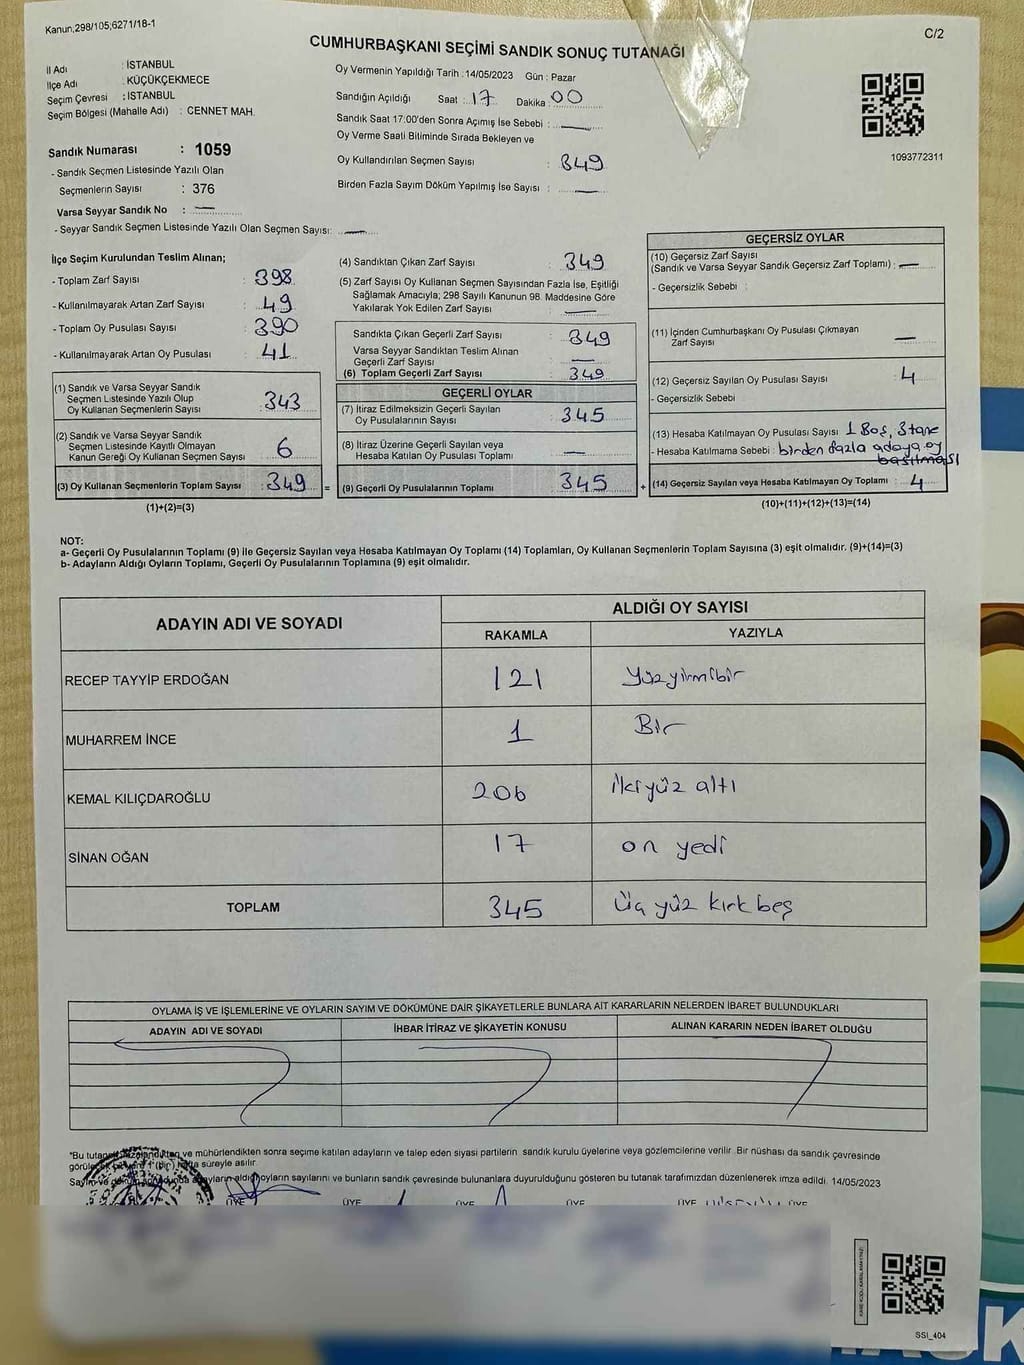 Kanun,298/105;6271/18-1
C/2
CUMHURBAŞKANI SEÇİMİ SANDIK SONUÇ TUTANAĞI
İl Adı : İSTANBUL
İlçe Adı : KÜÇÜKÇEKMECE
Seçim Çevresi : İSTANBUL
Seçim Bölgesi (Mahalle Adı) : CENNET MAH.
Sandık Numarası : 1059
- Sandık Seçmen Listesinde Yazılı Olan
Seçmenlerin Sayısı : 376
Varsa Seyyar Sandık No : —
- Seyyar Sandık Seçmen Listesinde Yazılı Olan Seçmen Sayısı: —
Oy Vermenin Yapıldığı Tarih : 14/05/2023 Gün : Pazar
Sandığın Açıldığı Saat : 17 Dakika : 00
Sandık Saat 17:00'den Sonra Açımış İse Sebebi : —
Oy Verme Saati Bitiminde Sırada Bekleyen ve
Oy Kullandırılan Seçmen Sayısı : 349
Birden Fazla Sayım Döküm Yapılmış İse Sayısı : —
1093772311
İlçe Seçim Kurulundan Teslim Alınan;
- Toplam Zarf Sayısı : 398
- Kullanılmayarak Artan Zarf Sayısı : 49
- Toplam Oy Pusulası Sayısı : 390
- Kullanılmayarak Artan Oy Pusulası : 41
(1) Sandık ve Varsa Seyyar Sandık
Seçmen Listesinde Yazılı Olup
Oy Kullanan Seçmenlerin Sayısı : 343
(2) Sandık ve Varsa Seyyar Sandık
Seçmen Listesinde Kayıtlı Olmayan
Kanun Gereği Oy Kullanan Seçmen Sayısı : 6
(3) Oy Kullanan Seçmenlerin Toplam Sayısı : 349 =
(1)+(2)=(3)
(4) Sandıktan Çıkan Zarf Sayısı : 349
(5) Zarf Sayısı Oy Kullanan Seçmen Sayısından Fazla İse, Eşitliği
Sağlamak Amacıyla; 298 Sayılı Kanunun 98. Maddesine Göre
Yakılarak Yok Edilen Zarf Sayısı : —
Sandıkta Çıkan Geçerli Zarf Sayısı : 349
Varsa Seyyar Sandıktan Teslim Alınan
Geçerli Zarf Sayısı : —
(6) Toplam Geçerli Zarf Sayısı : 349
GEÇERLİ OYLAR
(7) İtiraz Edilmeksizin Geçerli Sayılan
Oy Pusulalarının Sayısı : 345
(8) İtiraz Üzerine Geçerli Sayılan veya
Hesaba Katılan Oy Pusulası Toplamı : —
(9) Geçerli Oy Pusulalarının Toplamı : 345 +
GEÇERSİZ OYLAR
(10) Geçersiz Zarf Sayısı
(Sandık ve Varsa Seyyar Sandık Geçersiz Zarf Toplamı) : —
- Geçersizlik Sebebi :
(11) İçinden Cumhurbaşkanı Oy Pusulası Çıkmayan
Zarf Sayısı : —
(12) Geçersiz Sayılan Oy Pusulası Sayısı : 4
- Geçersizlik Sebebi
(13) Hesaba Katılmayan Oy Pusulası Sayısı : 1 Boş, 3 tane
- Hesaba Katılmama Sebebi : birden fazla adaya oy
basılması
(14) Geçersiz Sayılan veya Hesaba Katılmayan Oy Toplamı : 4
(10)+(11)+(12)+(13)=(14)
NOT:
a- Geçerli Oy Pusulalarının Toplamı (9) ile Geçersiz Sayılan veya Hesaba Katılmayan Oy Toplamı (14) Toplamları, Oy Kullanan Seçmenlerin Toplam Sayısına (3) eşit olmalıdır. (9)+(14)=(3)
b- Adayların Aldığı Oyların Toplamı, Geçerli Oy Pusulalarının Toplamına (9) eşit olmalıdır.
ADAYIN ADI VE SOYADI
ALDIĞI OY SAYISI
RAKAMLA YAZIYLA
RECEP TAYYİP ERDOĞAN 121 Yüzyirmibir
MUHARREM İNCE 1 Bir
KEMAL KILIÇDAROĞLU 206 İkiyüz altı
SİNAN OĞAN 17 on yedi
TOPLAM 345 Üç yüz kırk beş
OYLAMA İŞ VE İŞLEMLERİNE VE OYLARIN SAYIM VE DÖKÜMÜNE DAİR ŞİKAYETLERLE BUNLARA AİT KARARLARIN NELERDEN İBARET BULUNDUKLARI
ADAYIN ADI VE SOYADI İHBAR İTİRAZ VE ŞİKAYETİN KONUSU ALINAN KARARIN NEDEN İBARET OLDUĞU
*Bu ve mühürlendikten sonra seçime katılan adayların ve talep eden siyasi partilerin sandık kurulu üyelerine veya gözlemcilerine verilir. Bir nüshası da sandık çevresinde
1 (bir) hafta süreyle asılır.
oyların sayılarını ve bunların sandık çevresinde bulunanlara duyurulduğunu gösteren bu tutanak tarafımızdan düzenlenerek imza edildi. 14/05/2023
ÜYE ÜYE ÜYE ÜYE ÜYE ÜYE
SSI_404